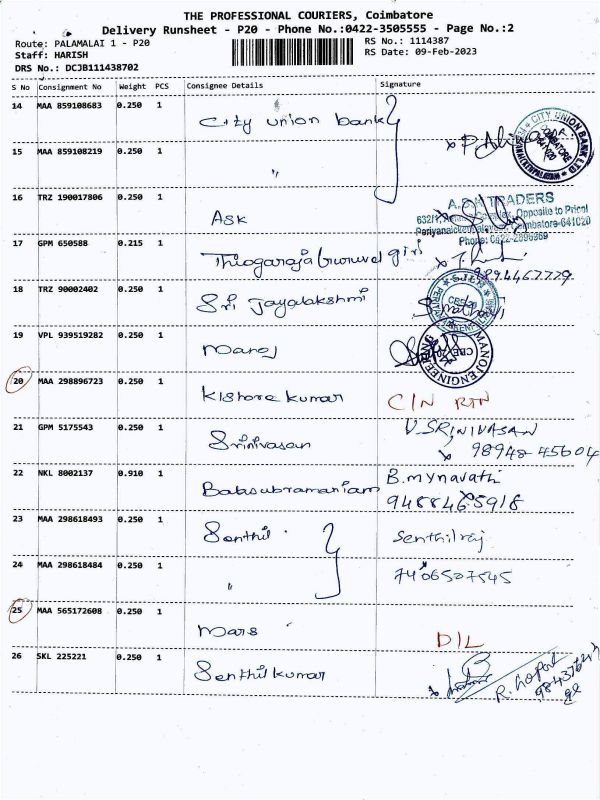 THE PROFESSIONAL COURIERS, Coimbatore
Delivery Runsheet - P20 - Phone No.:0422-3505555 - Page No.:2
Route: PALAMALAI 1 - P20
Staff: HARISH
DRS No.: DCJB111438702
RS No.: 1114387
RS Date: 09-Feb-2023
S No Consignment No Weight PCS Consignee Details Signature
14 MAA 859108683 0.250 1 City union bank
CITY UNION BANK LTD
15 MAA 859108219 0.250 1 "
16 TRZ 190017806 0.250 1 Ask
TRADERS
Opposite to Pricol
17 GPM 650588 0.215 1 giri
9894467779
18 TRZ 90002402 0.250 1 Sri Jayalakshmi
19 VPL 939519282 0.250 1 Manoj
MANOJ ENGINEERING
20 MAA 298896723 0.250 1 Kishore kumar C/N RTN
21 GPM 5175543 0.250 1 Srinivasan V. SRINIVASAN
98948 45604
22 NKL 8002137 0.910 1 Balasubramaniam B. mynavathi
9488465918
23 MAA 298618493 0.250 1 Senthil Senthilraj
24 MAA 298618484 0.250 1 " 7406507545
25 MAA 565172608 0.250 1 Mars D/L
26 SKL 225221 0.250 1 Senthil kumar
R. Gopal